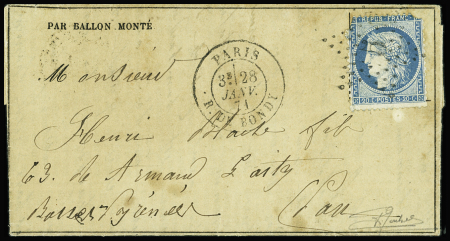 PAR BALLON MONTÉ
REPUB. FRANC.
PARIS
3E 28
JANV.
71
R. DE BONDY
20 C POSTES 20 C
Monsieur
Henri fils
63. de Armand
Pau